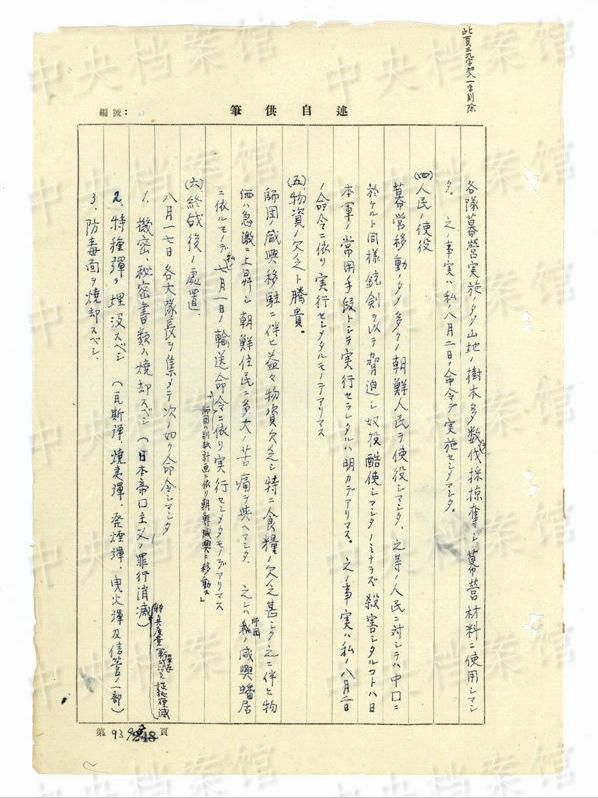 此頁三九字加入一字刪除
述自供筆
編號:
各隊幕営実施ノタメ山地ノ樹木多数伐採掠奪シ幕営材料ニ使用シマシ
タ。之ノ事実ハ私ノ八月二日ノ命令デ実施セシメマシタ。
(四)人民ノ使役
幕営移動ノタメ多クノ朝鮮人民ヲ使役シマシタ、之等ノ人民ニ対シテハ中口ニ
於ケルト同様銃剣ヲ以テ脅迫シ奴役酷使シマシタノミナラズ殺害シタルコトハ日
本軍ノ常用手段トシテ実行セラレタルハ明カデアリマス。之ノ事実ハ私ノ八月二日
ノ命令ニ依リ実行セシメタルモノデアリマス
(五)物資ノ欠乏ト騰貴。
師団ノ咸興移駐ニ伴ヒ益々物資欠乏シ特ニ食糧ノ欠乏甚シク之ニ伴ヒ物
価ハ急激ニ上昇シ朝鮮住民ニ多大ノ苦痛ヲ与ヘマシタ、之レハ師団ノ咸興蟠居
ニ依ルモノデ私ノ七月一日ノ輸送命令ニ依リ実行セシメタモノデアリマス
「師団ハ別紙計画ニ依リ朝鮮咸興ニ移動ス」
(六)終戦後ノ處置
八月一七日各大隊長ヲ集メテ次ノ如ク命令シマシタ
1、機密、秘密書類ハ焼却スベシ(日本帝口主義ノ罪行消滅)
2、特種弾ヲ埋没スベシ(瓦斯弾、焼夷弾、発煙弾、曳火弾及信管ノ一部)
3、防毒面ヲ焼却スベシ、
第 93 頁
中央档案馆